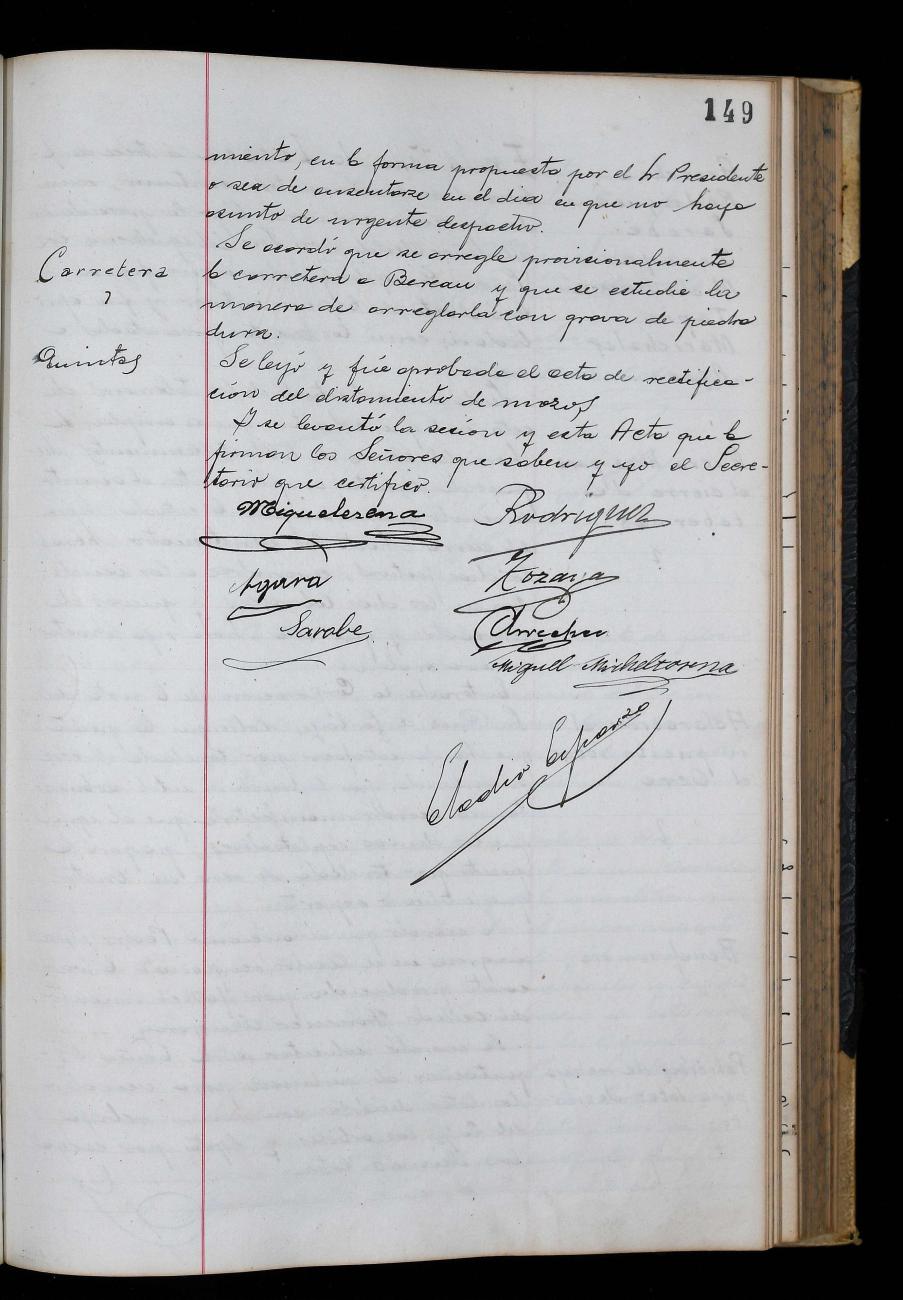 149
miento, en la forma propuesta por el Sr Presidente
o sea de ausentarse en el dia en que no haya
asunto de urgente despacho.
Carretera
Se acordó que se arregle provisionalmente
la carretera a Bereau y que se estudie la
manera de arreglarla con grava de piedra
dura.
Quintas
Se leyó y fué aprobada el acta de rectifica-
ción del alistamiento de mozos
I se levantó la sesion y esta Acta que la
firman los Señores que saben y yo el Secre-
tario que certifico.
Miquelerena Rodriguez
Agara Zozaya
Sarobe Arrechea
Miguel Micheltorena
Eladio Esparza